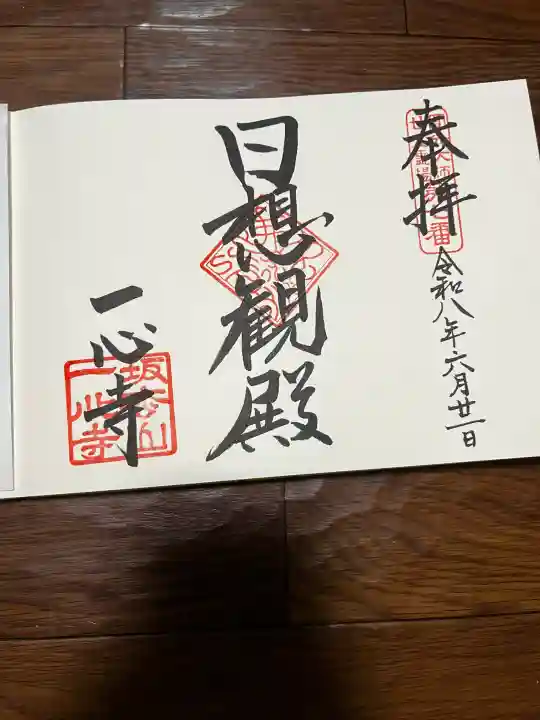 奉拝
令和八年六月廿一日
日想観殿
一心寺
坂松山
一心寺